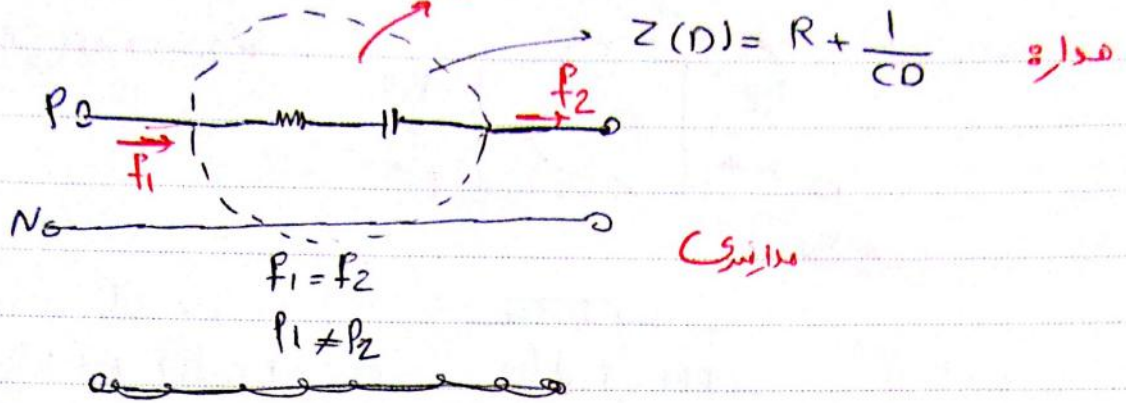 Z(D) = R + 1/CD مدار:
P f₁ f₂
N
مدار سری
f₁ = f₂
P₁ ≠ P₂